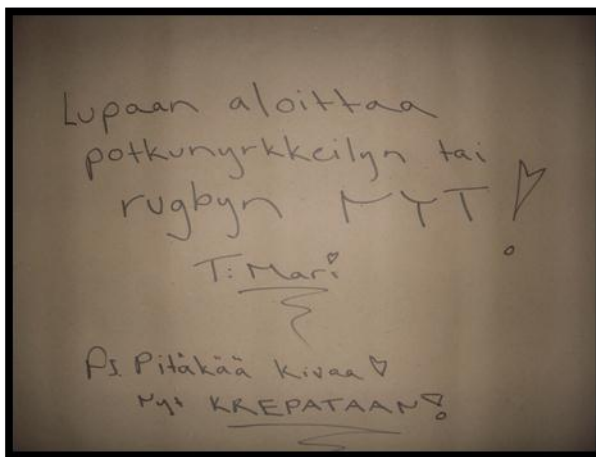 Lupaan aloittaa
potkunyrkkeilyn tai
rugbyn NYT!
T: Mari
Ps. Pitäkää kivaa
Nyt KREPATAAN!